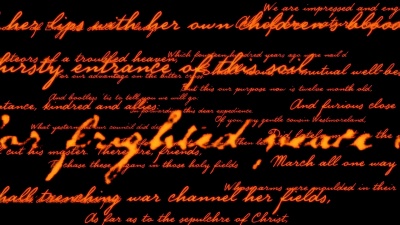 We are impressed and eng
her lips with her own children's blood
tears of a troubled heaven,
Which fourteen hundred years ago were nail'd
thirsty entrance of this soil
for our advantage on the bitter cross
mutual well-be
But this our purpose now is twelve month old,
And bootless 'tis to tell you we will go:
stance, kindred and allies:
in forwarding this dear expedience
And furious close
Of you my gentle cousin Westmoreland,
What yesternight our council did
for frighted
cut his master. Therefore, friends,
To chase these pagans in those holy fields
March all one way
Whose arms were moulded in their
shall trenching war channel her fields,
As far as to the sepulchre of Christ,